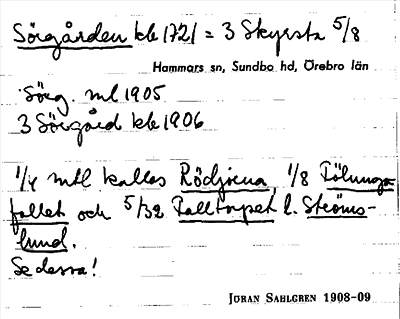 Sörgården kb 1721 = 3 Skyrsta 5/8
Hammars sn, Sundbo hd, Örebro län
Sörg. ml 1905
3 Sörgård kb 1906
1/4 mtl kallas Rödjorna, 1/8 Fölunga
fallet och 5/32 Talltorpet l. Ströms-
lund.
Se dessa!
JÖRAN SAHLGREN 1908-09